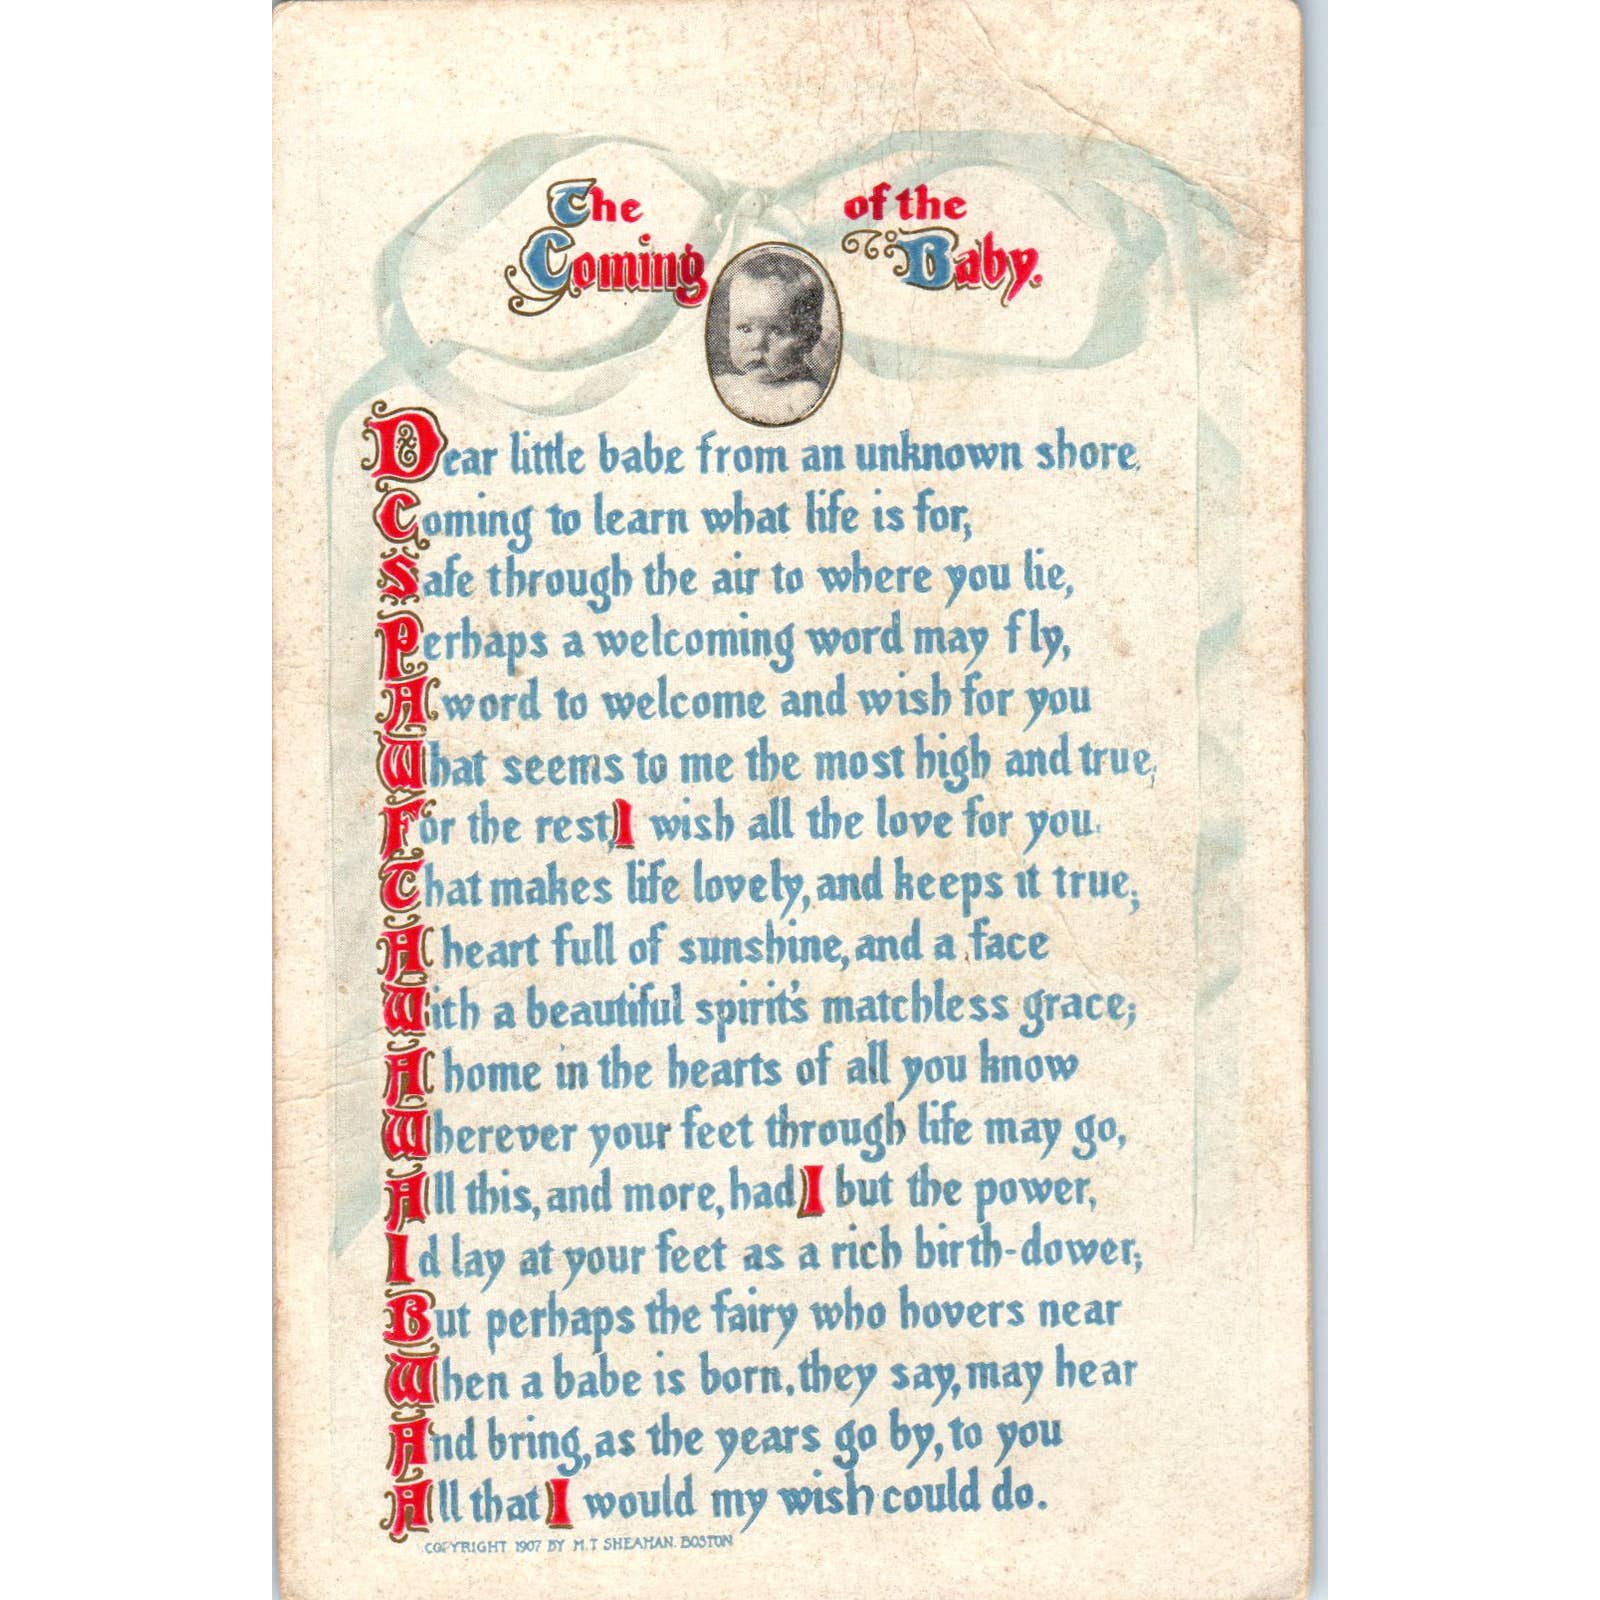 The Coming of the Baby.
Dear little babe from an unknown shore,
Coming to learn what life is for,
Safe through the air to where you lie,
Perhaps a welcoming word may fly,
A word to welcome and wish for you
What seems to me the most high and true,
For the rest, I wish all the love for you.
That makes life lovely, and keeps it true;
A heart full of sunshine, and a face
With a beautiful spirit's matchless grace;
A home in the hearts of all you know
Wherever your feet through life may go,
All this, and more, had I but the power,
Id lay at your feet as a rich birth-dower;
But perhaps the fairy who hovers near
When a babe is born, they say, may hear
And bring, as the years go by, to you
All that I would my wish could do.
COPYRIGHT 1907 BY M.T SHEAHAN. BOSTON